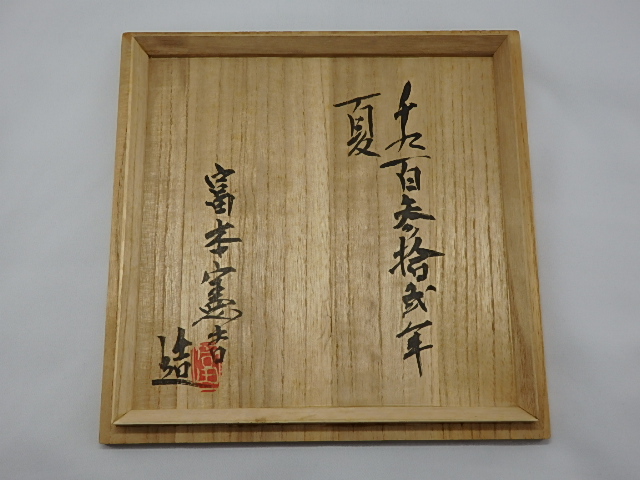 千九百参拾弐年
夏
富本憲吉
造